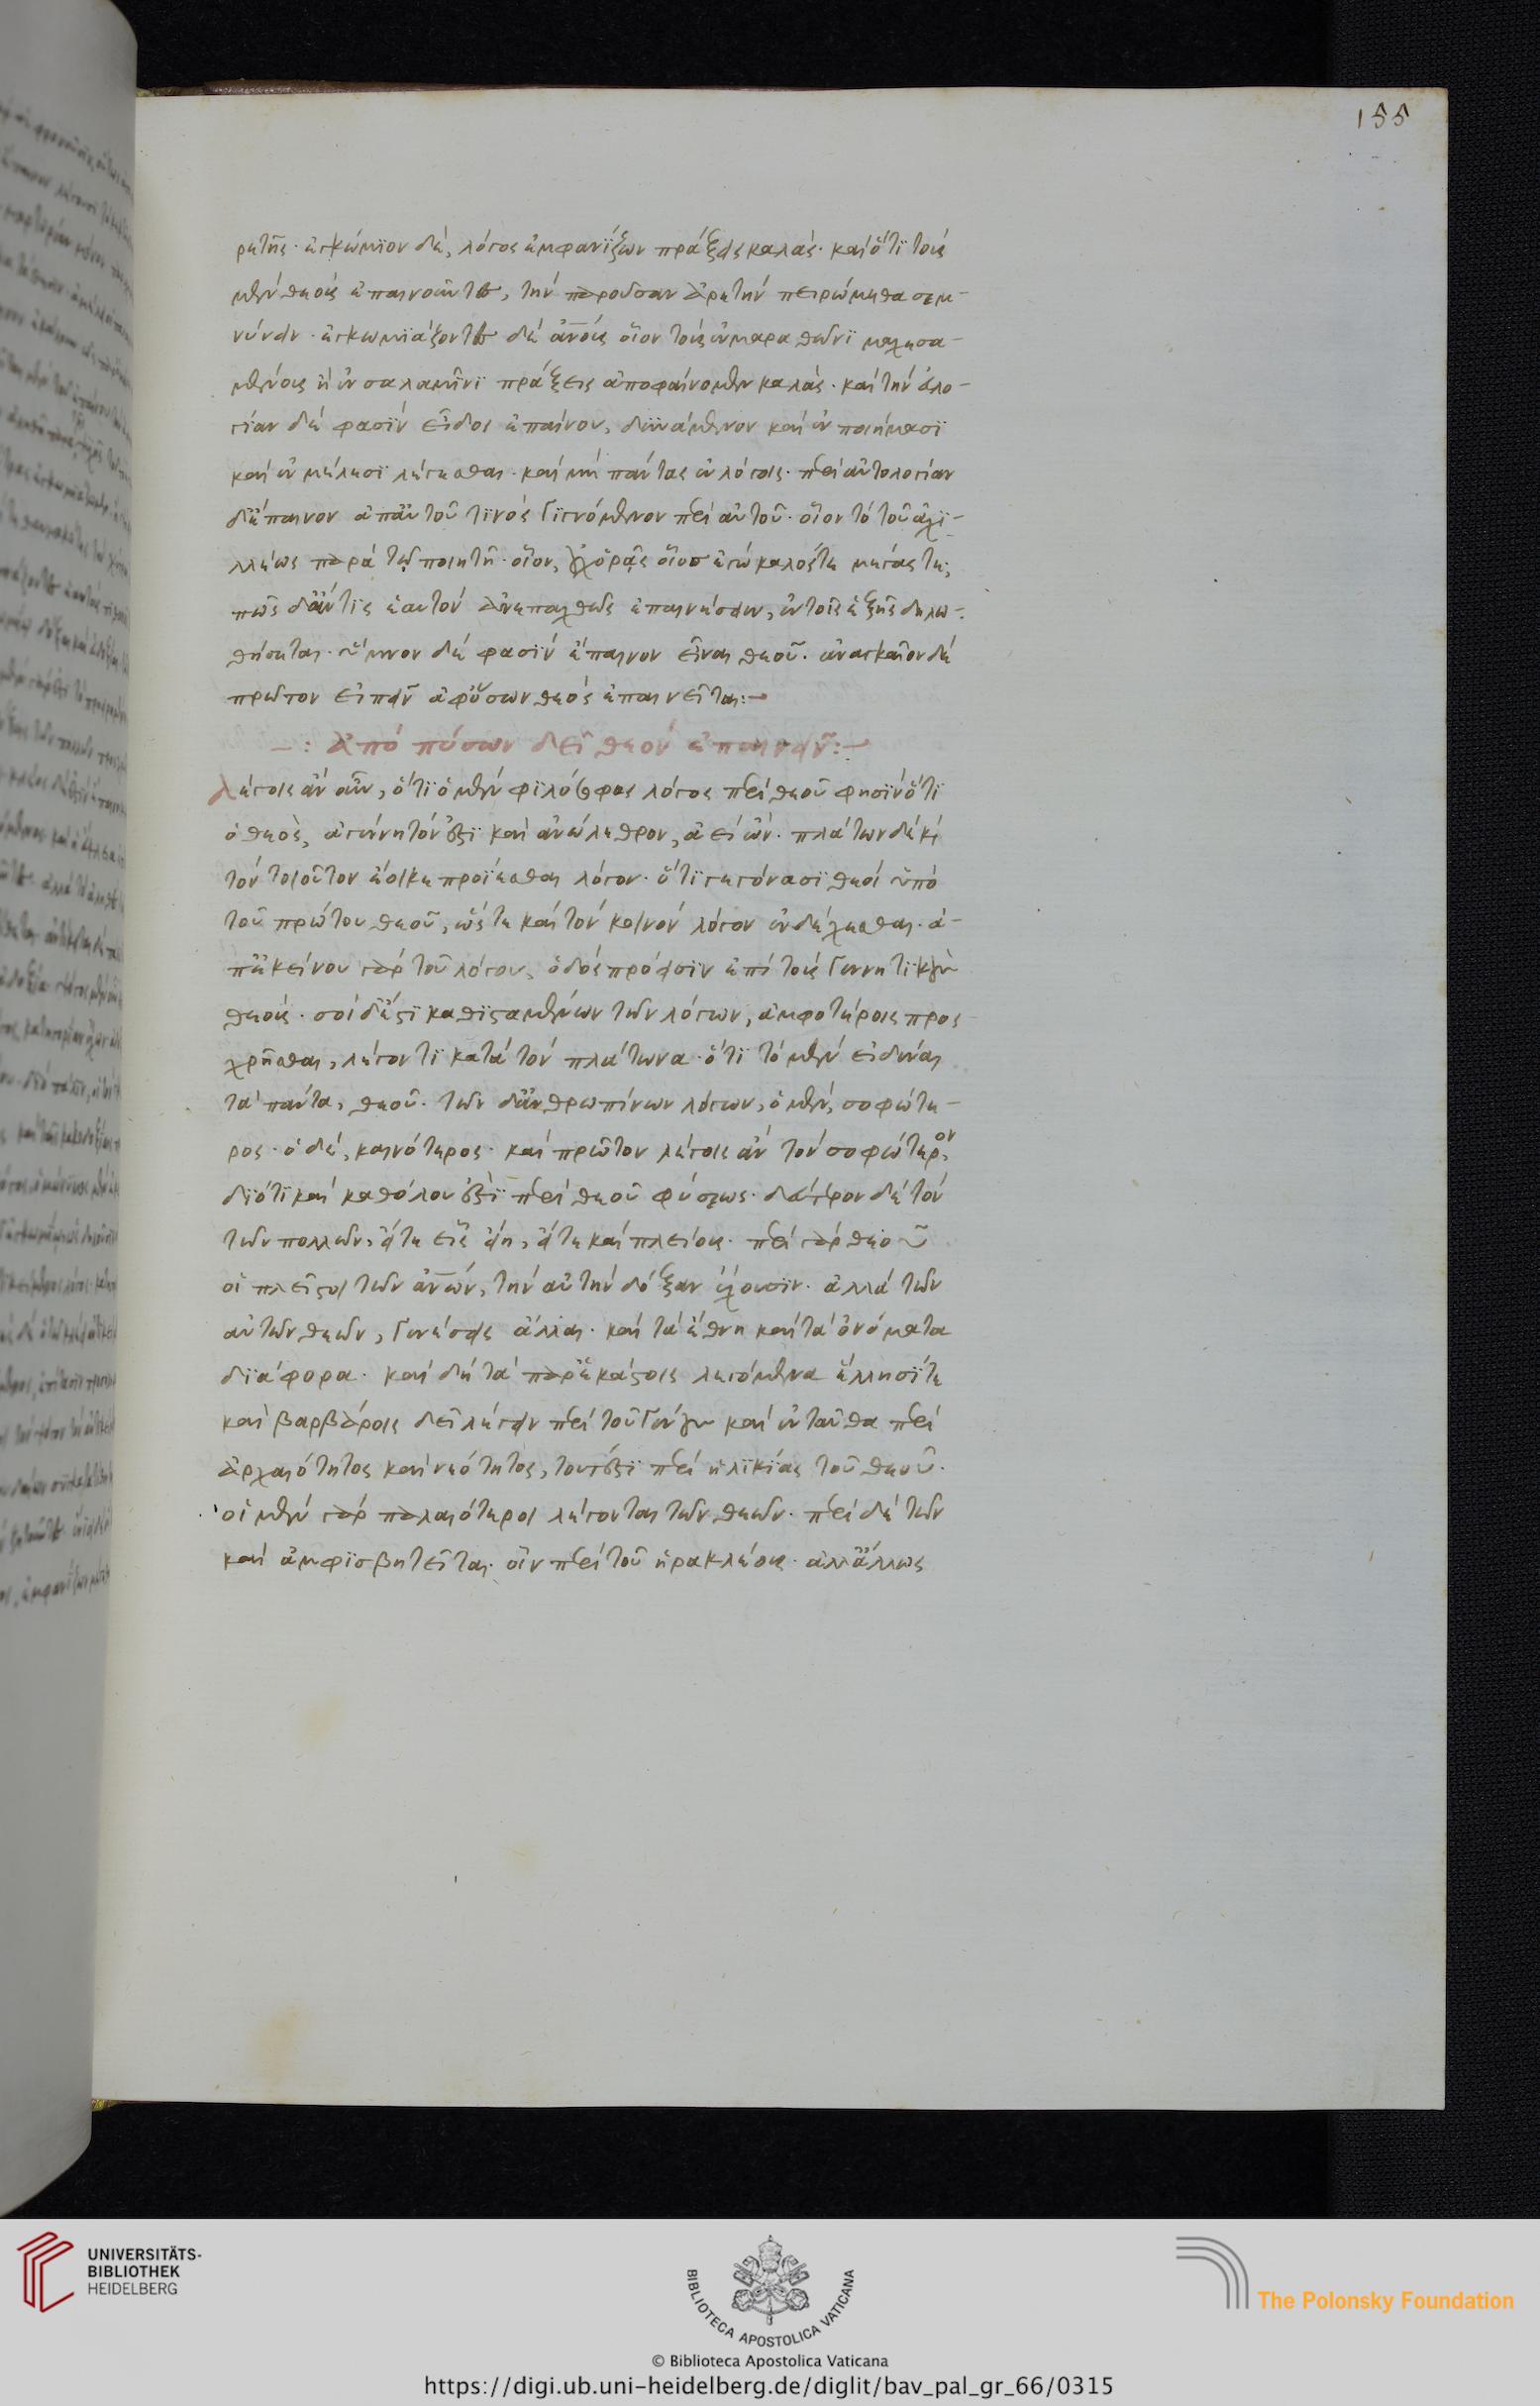 155
ρετῆς· ἐγκώμϊον δὲ, λόγος ἐμφανίζων πράξεις καλάς· καὶ ὅτϊ τοὺς
μὲν θεοὺς ἐπαινοῦντες, τὴν παροῦσαν ἀρετὴν πειρώμεθα σεμ-
νύνειν· ἐγκωμϊάζοντες δὲ ἀν̅ο̅υς οἷον τοὺς ἐν μαραθῶνϊ μαχεσα-
μένους ἢ ἐν σαλαμῖνϊ πράξεις ἀποφαίνομεν καλάς· καὶ τὴν εὐλο-
γίαν δέ φασϊν εἶδος ἐπαίνου, δυνάμενον καὶ ἐν ποιήμασϊ
καὶ ἐν μέλεσϊ λέγεσθαι· καὶ μὴ πάντως ἐν λόγοις· περιαυτολογίαν
δἔπαινον ἀπαὐτοῦ τϊνὸς γϊγνόμενον περὶ αὐτοῦ· οἷον τὸ τοῦ ἀχϊ-
λλέως παρὰ τῷ ποιητῇ· οἷον, οὐχ ὁρᾷς οἷος ἐγὼ καλός τε μέγας τε;
πῶς δἄν τϊς ἑαυτὸν ἀνεπαχθῶς ἐπαινέσειεν, ἐν τοῖς ἑξῆς δηλω-
θήσεται· ὕμνον δέ φασϊν ἔπαινον εἶναι θεοῦ· ἀναγκαῖον δὲ
πρῶτον εἰπεῖν ἀφ ὅσων θεὸς ἐπαινεῖται:
—: Ἀπὸ πόσων δεῖ θεὸν ἐπαινεῖν:—
λέγοις ἂν οὖν, ὅτϊ ὁ μὲν φϊλόσοφος λόγος περὶ θεοῦ φησϊν ὅτϊ
ὁ θεὸς, ἀγέννητόν ἐστϊ καὶ ἀνώλεθρον, ἀεὶ ὤν· πλάτων δὲ καὶ
τὸν τοιοῦτον ἔοικε προΐεσθαι λόγον· ὅτϊ γεγόνασϊ θεοὶ ὑπὸ
τοῦ πρώτου θεοῦ, ὥστε καὶ τὸν κοινὸν λόγον ἐνδέχεσθαι· ἀ-
πἐκείνου γὰρ τοῦ λόγου, ὁδὸς πρόεισϊν ἐπὶ τοὺς γεννητϊκοὺς
θεούς· σοὶ δἔστϊ καθϊσταμένων τῶν λόγων, ἀμφοτέροις προσ
χρῆσθαι, λέγοντϊ κατὰ τὸν πλάτωνα· ὅτϊ τὸ μὲν εἰδέναι
τὰ πάντα, θεοῦ· τῶν δἀνθρωπίνων λόγων, ὁ μὲν, σοφώτε-
ρος· ὁ δὲ, καινότερος· καὶ πρῶτον λέγοις ἂν τὸν σοφώτερον,
δϊότϊ καὶ καθόλου ἐστϊ περὶ θεοῦ φύσεως· δεύτερον δὲ τὸν
τῶν πολλῶν, εἴτε εἷς εἴη, εἴτε καὶ πλείους· περὶ γὰρ θεοῦ
οἱ πλεῖστοι τῶν ἀν̅ων, τὴν αὐτὴν δόξαν ἔχουσϊν· ἀλλὰ τῶν
αὐτῶν θεῶν, γενέσεις ἄλλαι· καὶ τὰ ἔθνη καὶ τὰ ὀνόματα
δϊάφορα· καὶ δὴ τὰ παρἑκάστοις λεγόμενα ἕλλησϊ τε
καὶ βαρβάροις δεῖ λέγειν περὶ τοῦ γένους καὶ ἐνταῦθα περὶ
ἀρχαιότητος καὶ νεότητος, τουτέστϊ περὶ ἡλϊκίας τοῦ θεοῦ·
οἱ μὲν γὰρ παλαιότεροι λέγονται τῶν θεῶν· περὶ δὲ τῶν
καὶ ἀμφϊσβητεῖται· οἷον περὶ τοῦ ἡρακλέους· ἀλλἄλλως
UNIVERSITÄTS-
BIBLIOTHEK
HEIDELBERG
BIBLIOTECA APOSTOLICA VATICANA
The Polonsky Foundation
© Biblioteca Apostolica Vaticana
https://digi.ub.uni-heidelberg.de/diglit/bav_pal_gr_66/0315